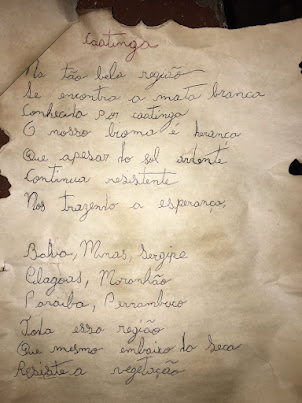 Caatinga
Na tão bela região
Se encontra a mata branca
Conhecida por caatinga
O nosso bioma e herança
Que apesar do sol ardente
Continua resistente
Nos trazendo a esperança.
Bahia, Minas, Sergipe
Alagoas, Maranhão
Paraíba, Pernambuco
Toda essa região
Que mesmo embaixo do seca
Resiste a vegetação